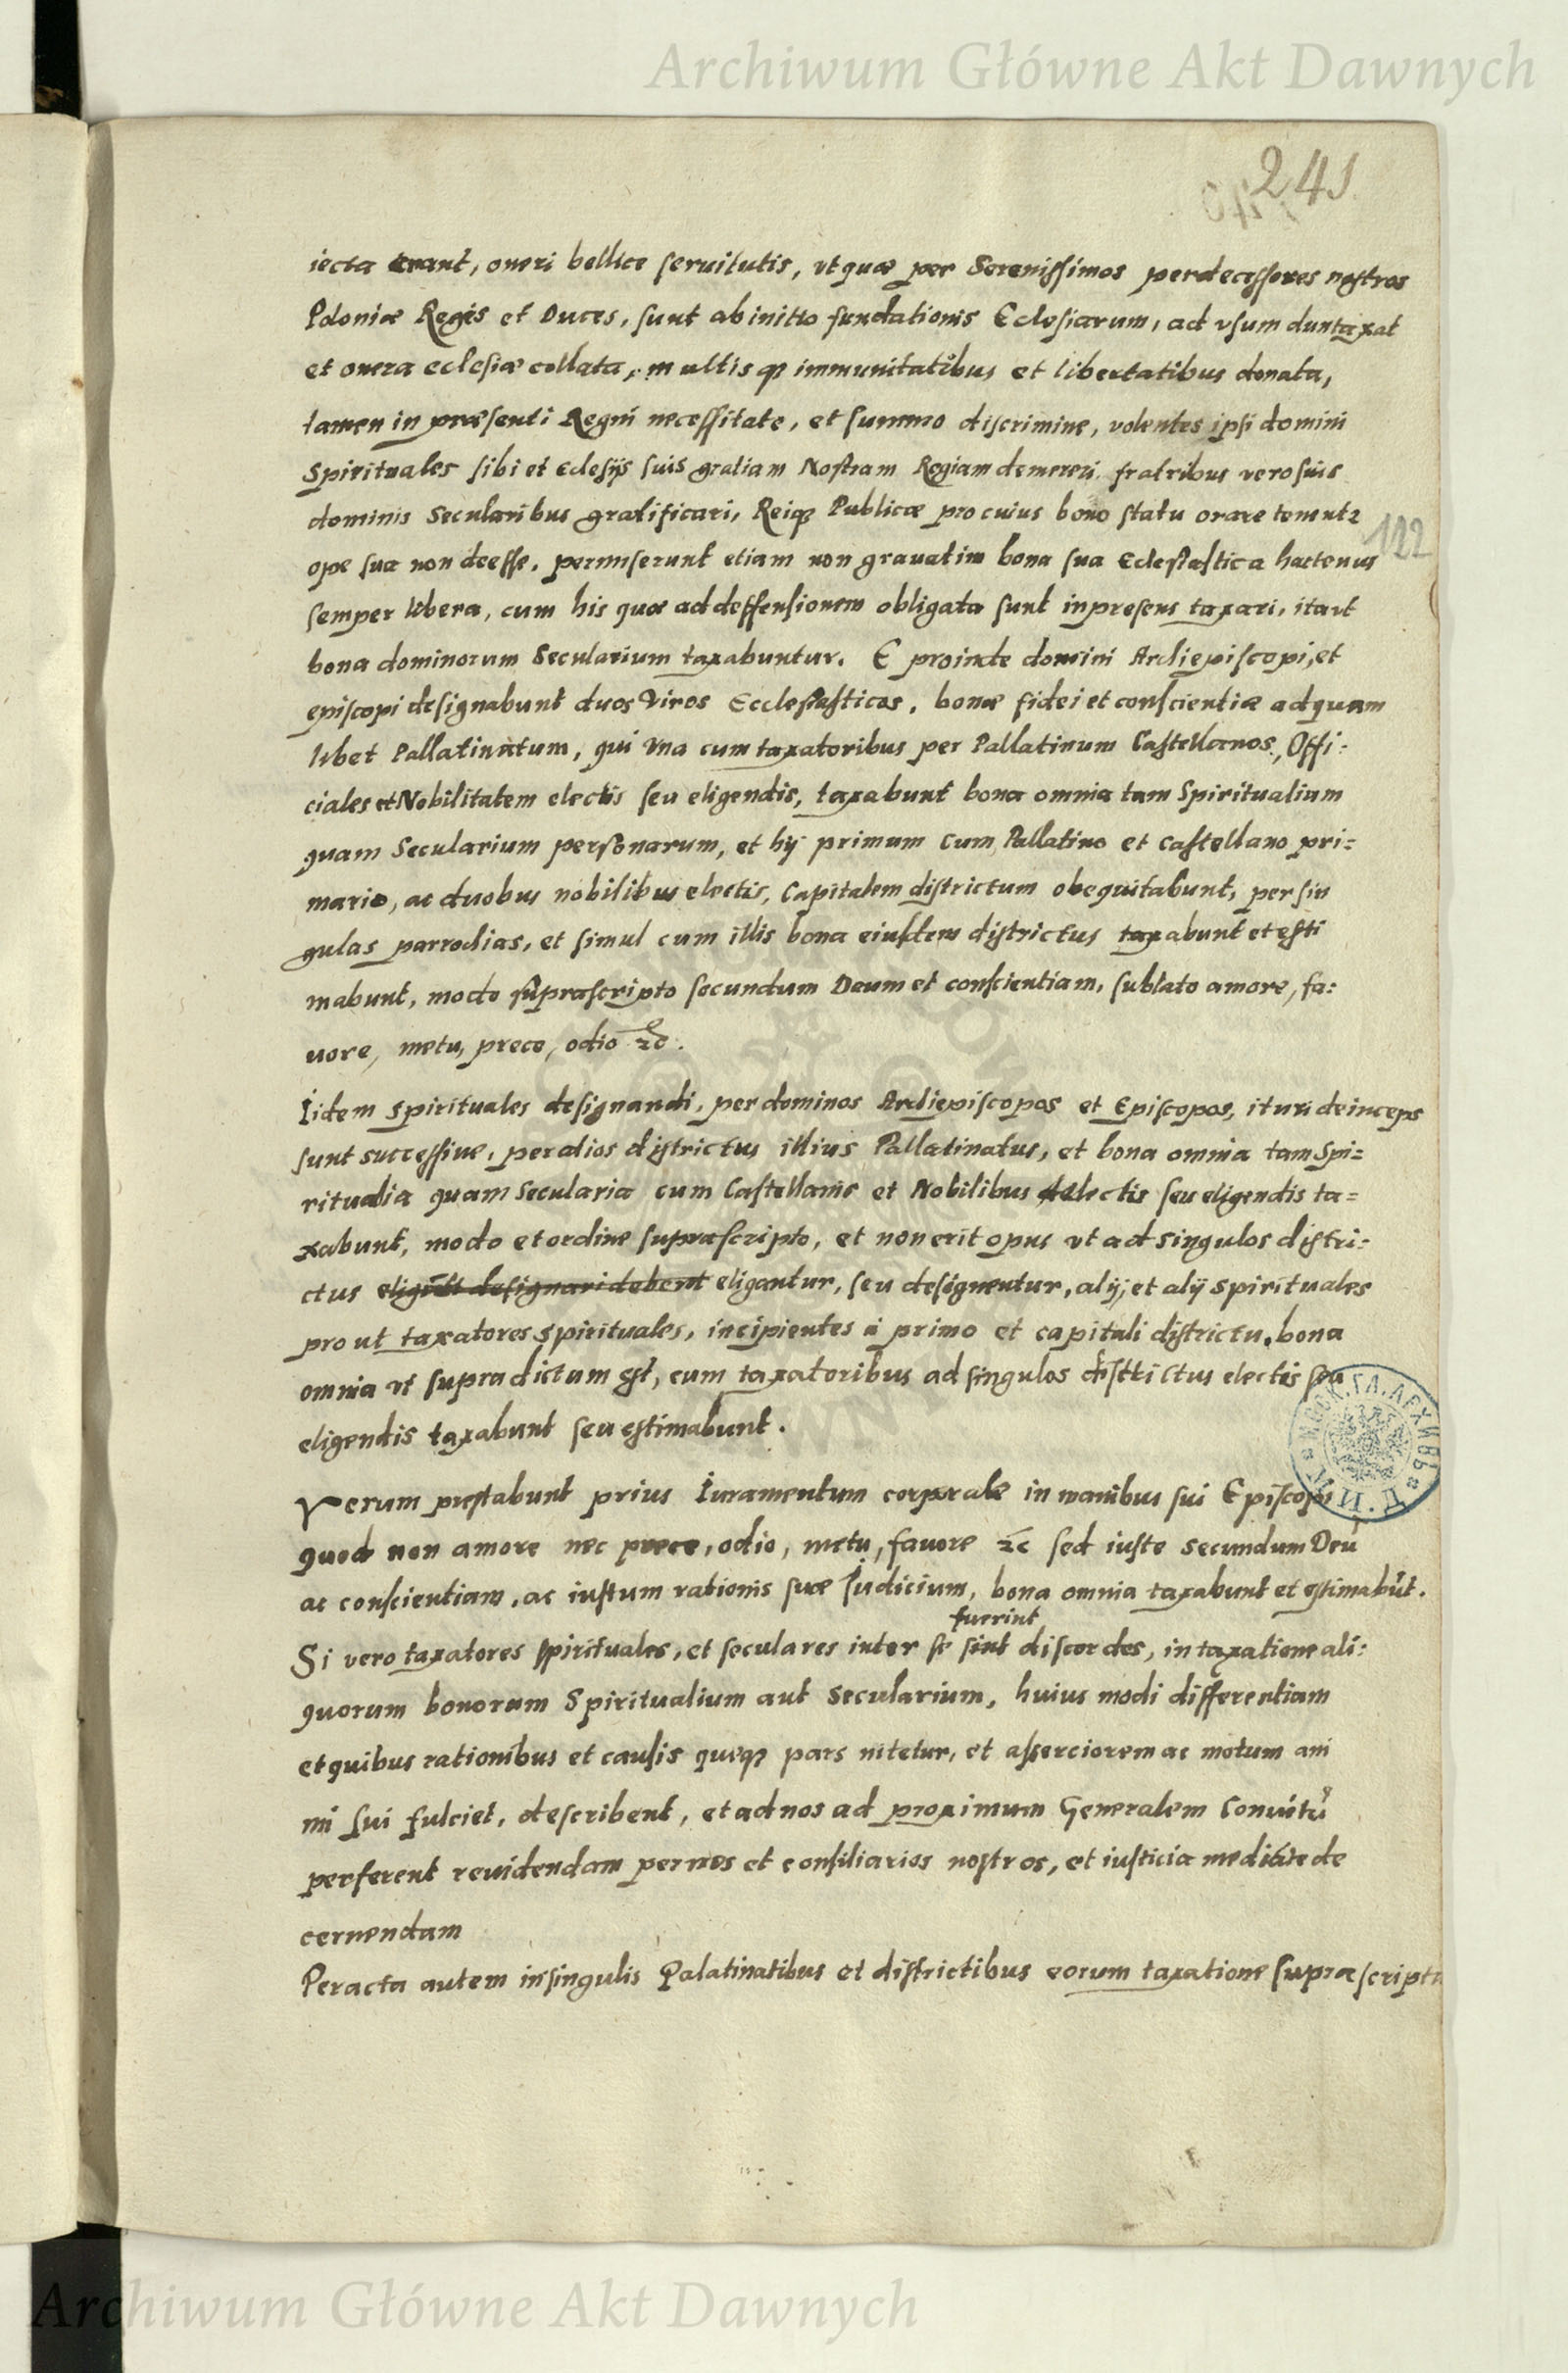 Archiwum Główne Akt Dawnych
241
iecta erant, oneri bellice seruitutis, vt quæ per Serenissimos perdecessores nostros
Poloniæ Reges et Duces, sunt ab initio fundationis Eclesiarum, ad vsum duntaxat
et onera eclesiæ collata, multisq3 immunitatibus et libertatibus donata,
tamen in præsenti Regni necessitate, et summo discrimine, volentes ipsi domini
Spirituales sibi et Eclesijs suis gratiam Nostram Regiam demereri fratribus vero suis
dominis Secularibus gratificari, Reiq3 Publicæ pro cuius bono statu orare tenentr
122
ope sua non deesse, permiserunt etiam non grauatim bona sua Eclesiastica hactenus
semper libera, cum his quæ ad deffensionem obligata sunt in presens taxari, ita vt
bona dominorum Secularium taxabuntur. E proinde domini Archiepiscopi, et
episcopi designabunt duos Viros Ecclesiasticos, bonæ fidei et conscientiæ ad quam
libet Pallatinatum, qui vna cum taxatoribus per Pallatinum Castellanos, Offi:
ciales et Nobilitatem electis seu eligendis, taxabunt bona omnia tam Spiritualium
quam Secularium personarum, et hij primum cum Pallatino et Castellano pri=
mario, ac duobus nobilibus electis, Capitalem districtum obequitabunt, per sin
gulas parrochias, et simul cum illis bona eiusdem districtus taxabunt et esti
mabunt, modo suprascripto secundum Deum et conscientiam, sublato amore, fa:
uore, metu, prece, odio &c.
Iidem spirituales designandi, per dominos Archiepiscopos et Episcopos, ituri deinceps
sunt successiue, per alios districtus illius Pallatinatus, et bona omnia tam Spi=
ritualia quam Secularia cum Castellanis et Nobilibus electis seu eligendis ta=
xabunt, modo et ordine suprascripto, et non erit opus vt ad singulos distri:
ctus designari debent eligantur, seu designentur, alij, et alij spirituales
prout taxatores spirituales, incipientes à primo et capitali districtu, bona
omnia vt supradictum est, cum taxatoribus ad singulos districtus electis seu
eligendis taxabunt seu estimabunt.
Verum prestabunt prius Iuramentum corporale in manibus sui Episcopi
quod non amore nec prece, odio, metu, fauore &c sed iuste secundum Deũ
ac conscientiam, ac iustum rationis suæ Iudicium, bona omnia taxabunt et estimabũt.
fuerint
Si vero taxatores spirituales, et seculares inter se sint discordes, in taxatione ali:
quorum bonorum Spiritualium aut Secularium, huiusmodi differentiam
et quibus rationibus et causis queq3 pars nitetur, et asserciorem ac motum ani
mi sui fulciet, describent, et ad nos ad proximum Generalem Conuẽtũ
perferent reuidendam per nos et consiliarios nostros, et iusticia mediãte de
cernendam
Peracta autem in singulis Palatinatibus et districtibus eorum taxatione suprascripta
Archiwum Główne Akt Dawnych